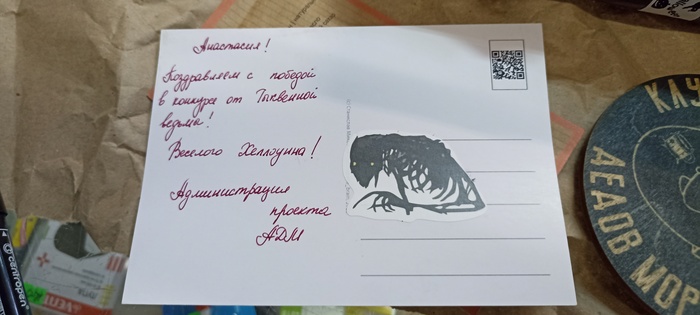 Анастасия!
Поздравляем с победой
в конкурсе от Тыквенной
ведьмы!
Веселого Хеллоуина!
Администрация
проекта
АДМ
КЛУ
ДЕДОВ МОРО
centropen